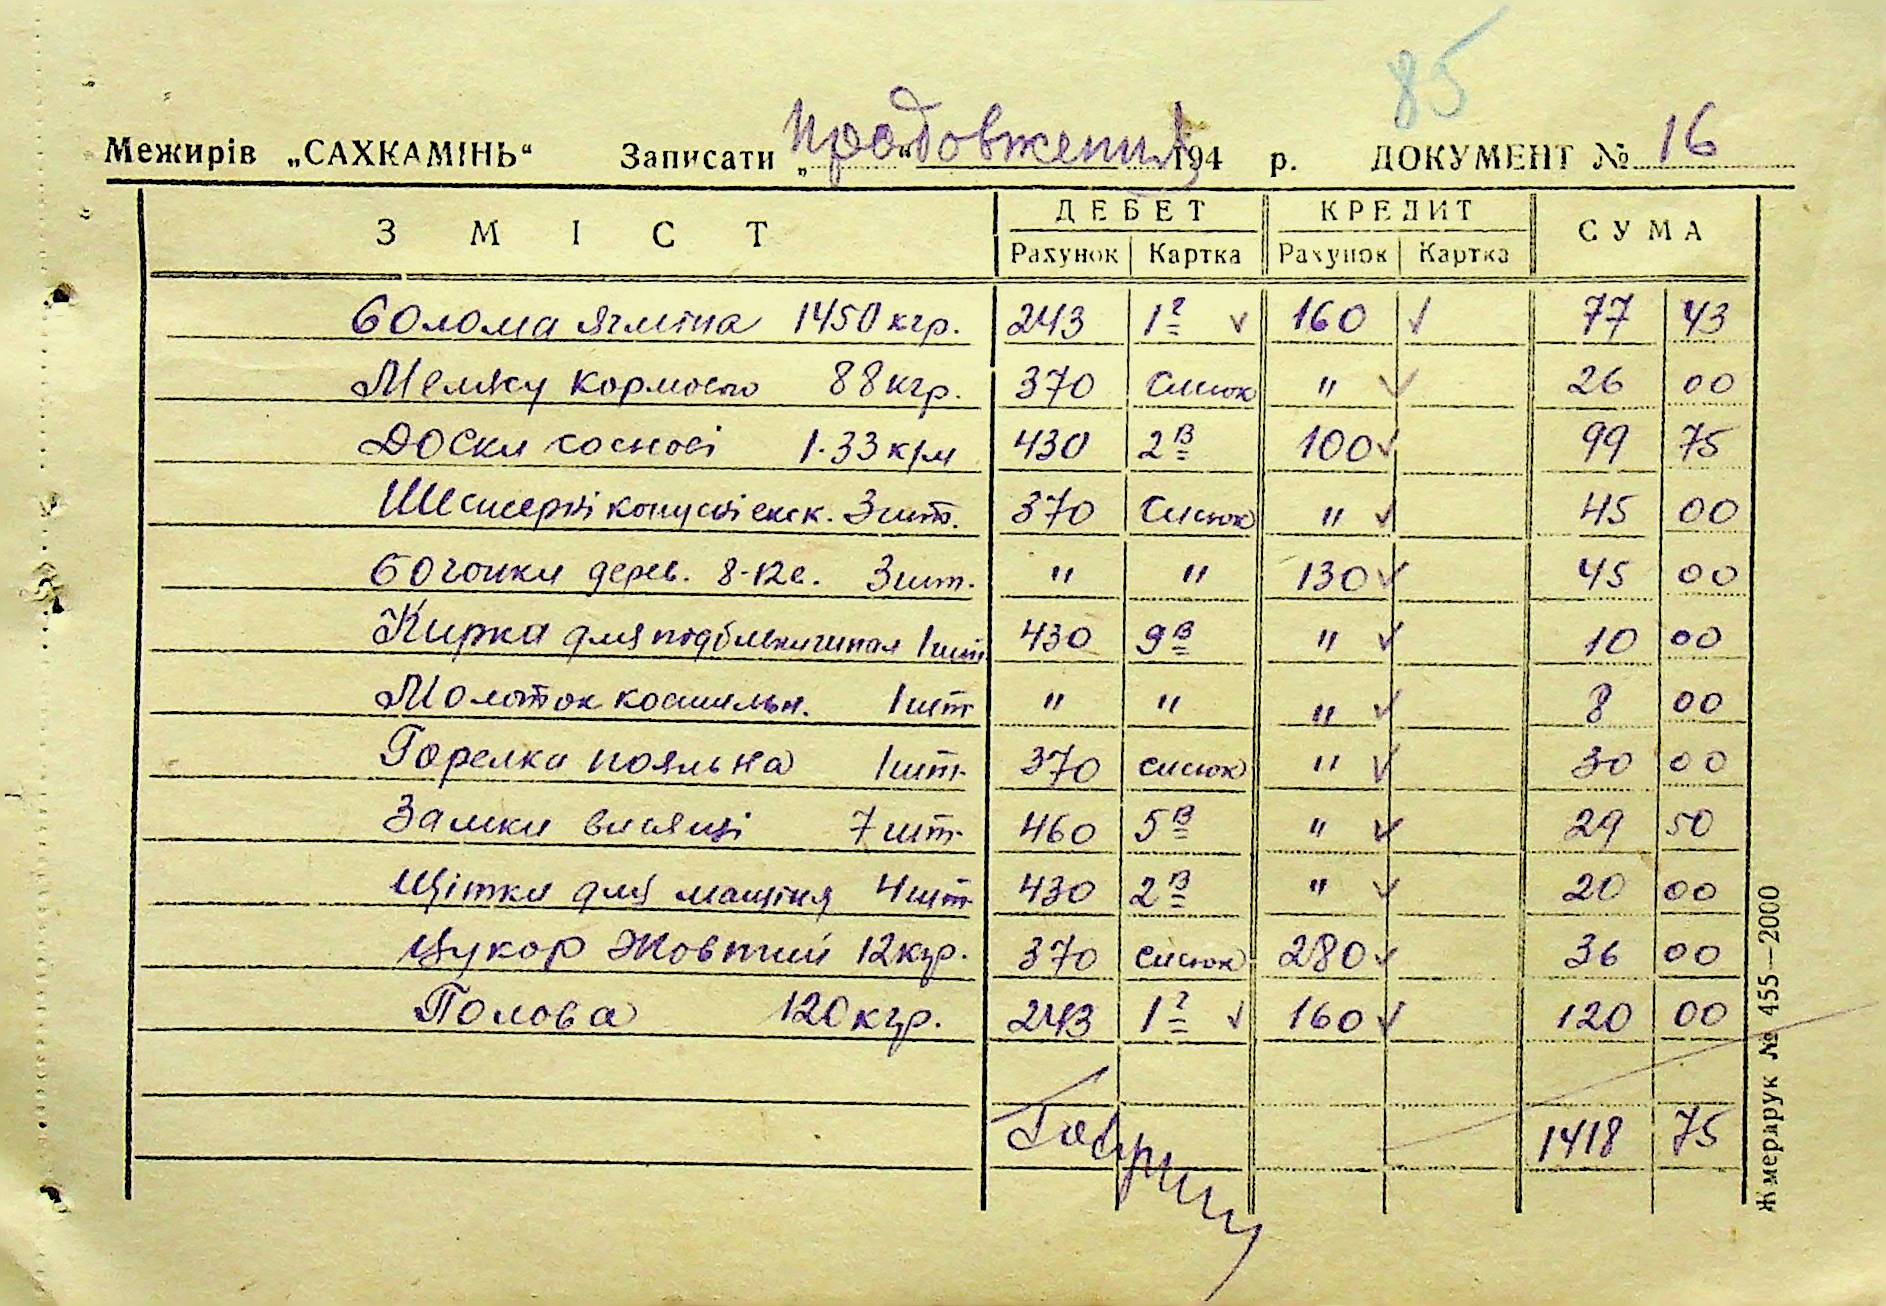 85
Межирів „САХКАМІНЬ“ Записати „продовження“ 194 р. ДОКУМЕНТ № 16
ЗМІСТ ДЕБЕТ КРЕДИТ СУМА
Рахунок Картка Рахунок Картка
Солома ячмінна 1450 кгр. 243 1 г ✓ 160 ✓ 77 43
Мелясу кормового 88 кгр. 370 Сисюк " ✓ 26 00
Доски соснові 1.33 к/м 430 2 в 100 ✓ 99 75
Шестерні конусні екск. 3 шт. 370 Сисюк " ✓ 45 00
Бочонки дерев. 8-12 е. 3 шт. " " 130 ✓ 45 00
Кирка для 1 шт 430 9 в " ✓ 10 00
Молоток 1 шт " " " ✓ 8 00
Горелка пояльна 1 шт. 370 сисюк " ✓ 30 00
Замки висящі 7 шт. 460 5 в " ✓ 29 50
Щітки для мащіня 4 шт. 430 2 в " ✓ 20 00
Цукор жовтий 12 кгр. 370 сисюк 280 ✓ 36 00
Полова 120 кгр. 243 1 г ✓ 160 ✓ 120 00
1418 75
Жмерарук № 455—2000